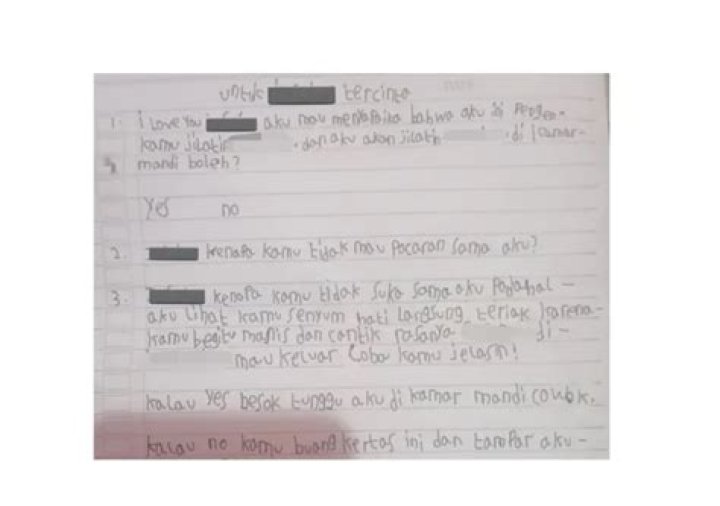 untuk tercinta
1. i Love You aku mau menyapaika bahwa aku di Pengen-
kamu jilatin . dan aku akan jilatin . di kamar-
mandi boleh?
Yes no
2. kenapa kamu tidak mau pacaran sama aku?
3. kenapa kamu tidak suka sama aku Padahal -
aku lihat kamu senyum hati langsung teriak karena-
kamu begitu manis dan cantik rasanya di -
mau keluar Coba kamu jelasin!
kalau Yes besok tunggu aku di kamar mandi cowok.
kalau no kamu buang kertas ini dan tampar aku -